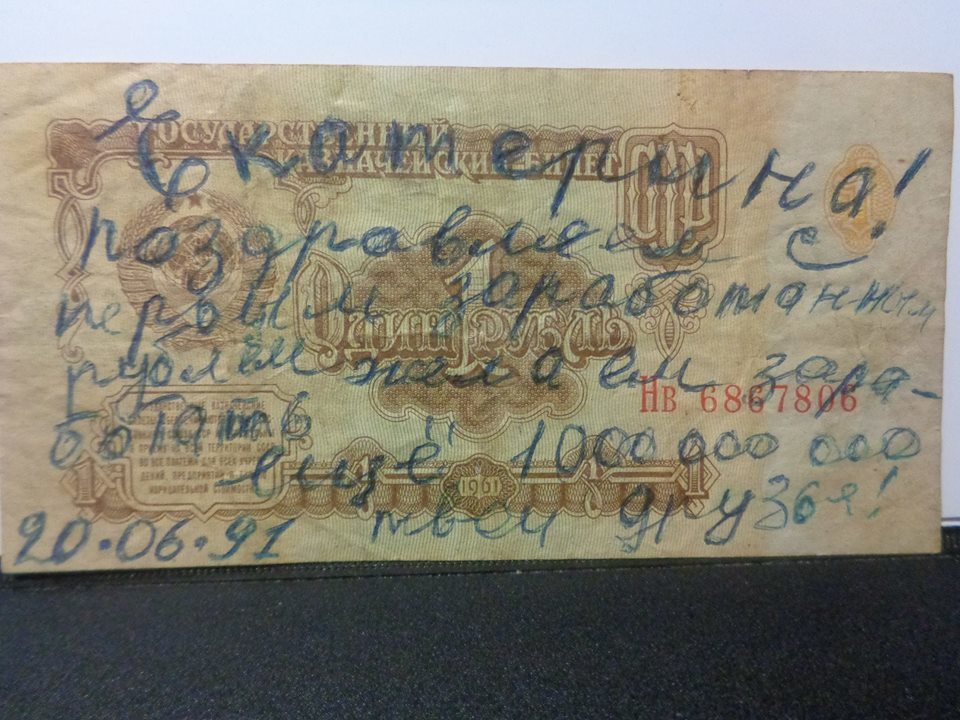 Екатерина!
поздравляем с
первым заработанным
рублём желаем зара-
ботать
ещё 1000 000 000
20.06.91 твои друзья!
ГОСУДАРСТВЕННЫЙ
КАЗНАЧЕЙСКИЙ БИЛЕТ
1
ОДИН РУБЛЬ
Нв 6867806
1 1961